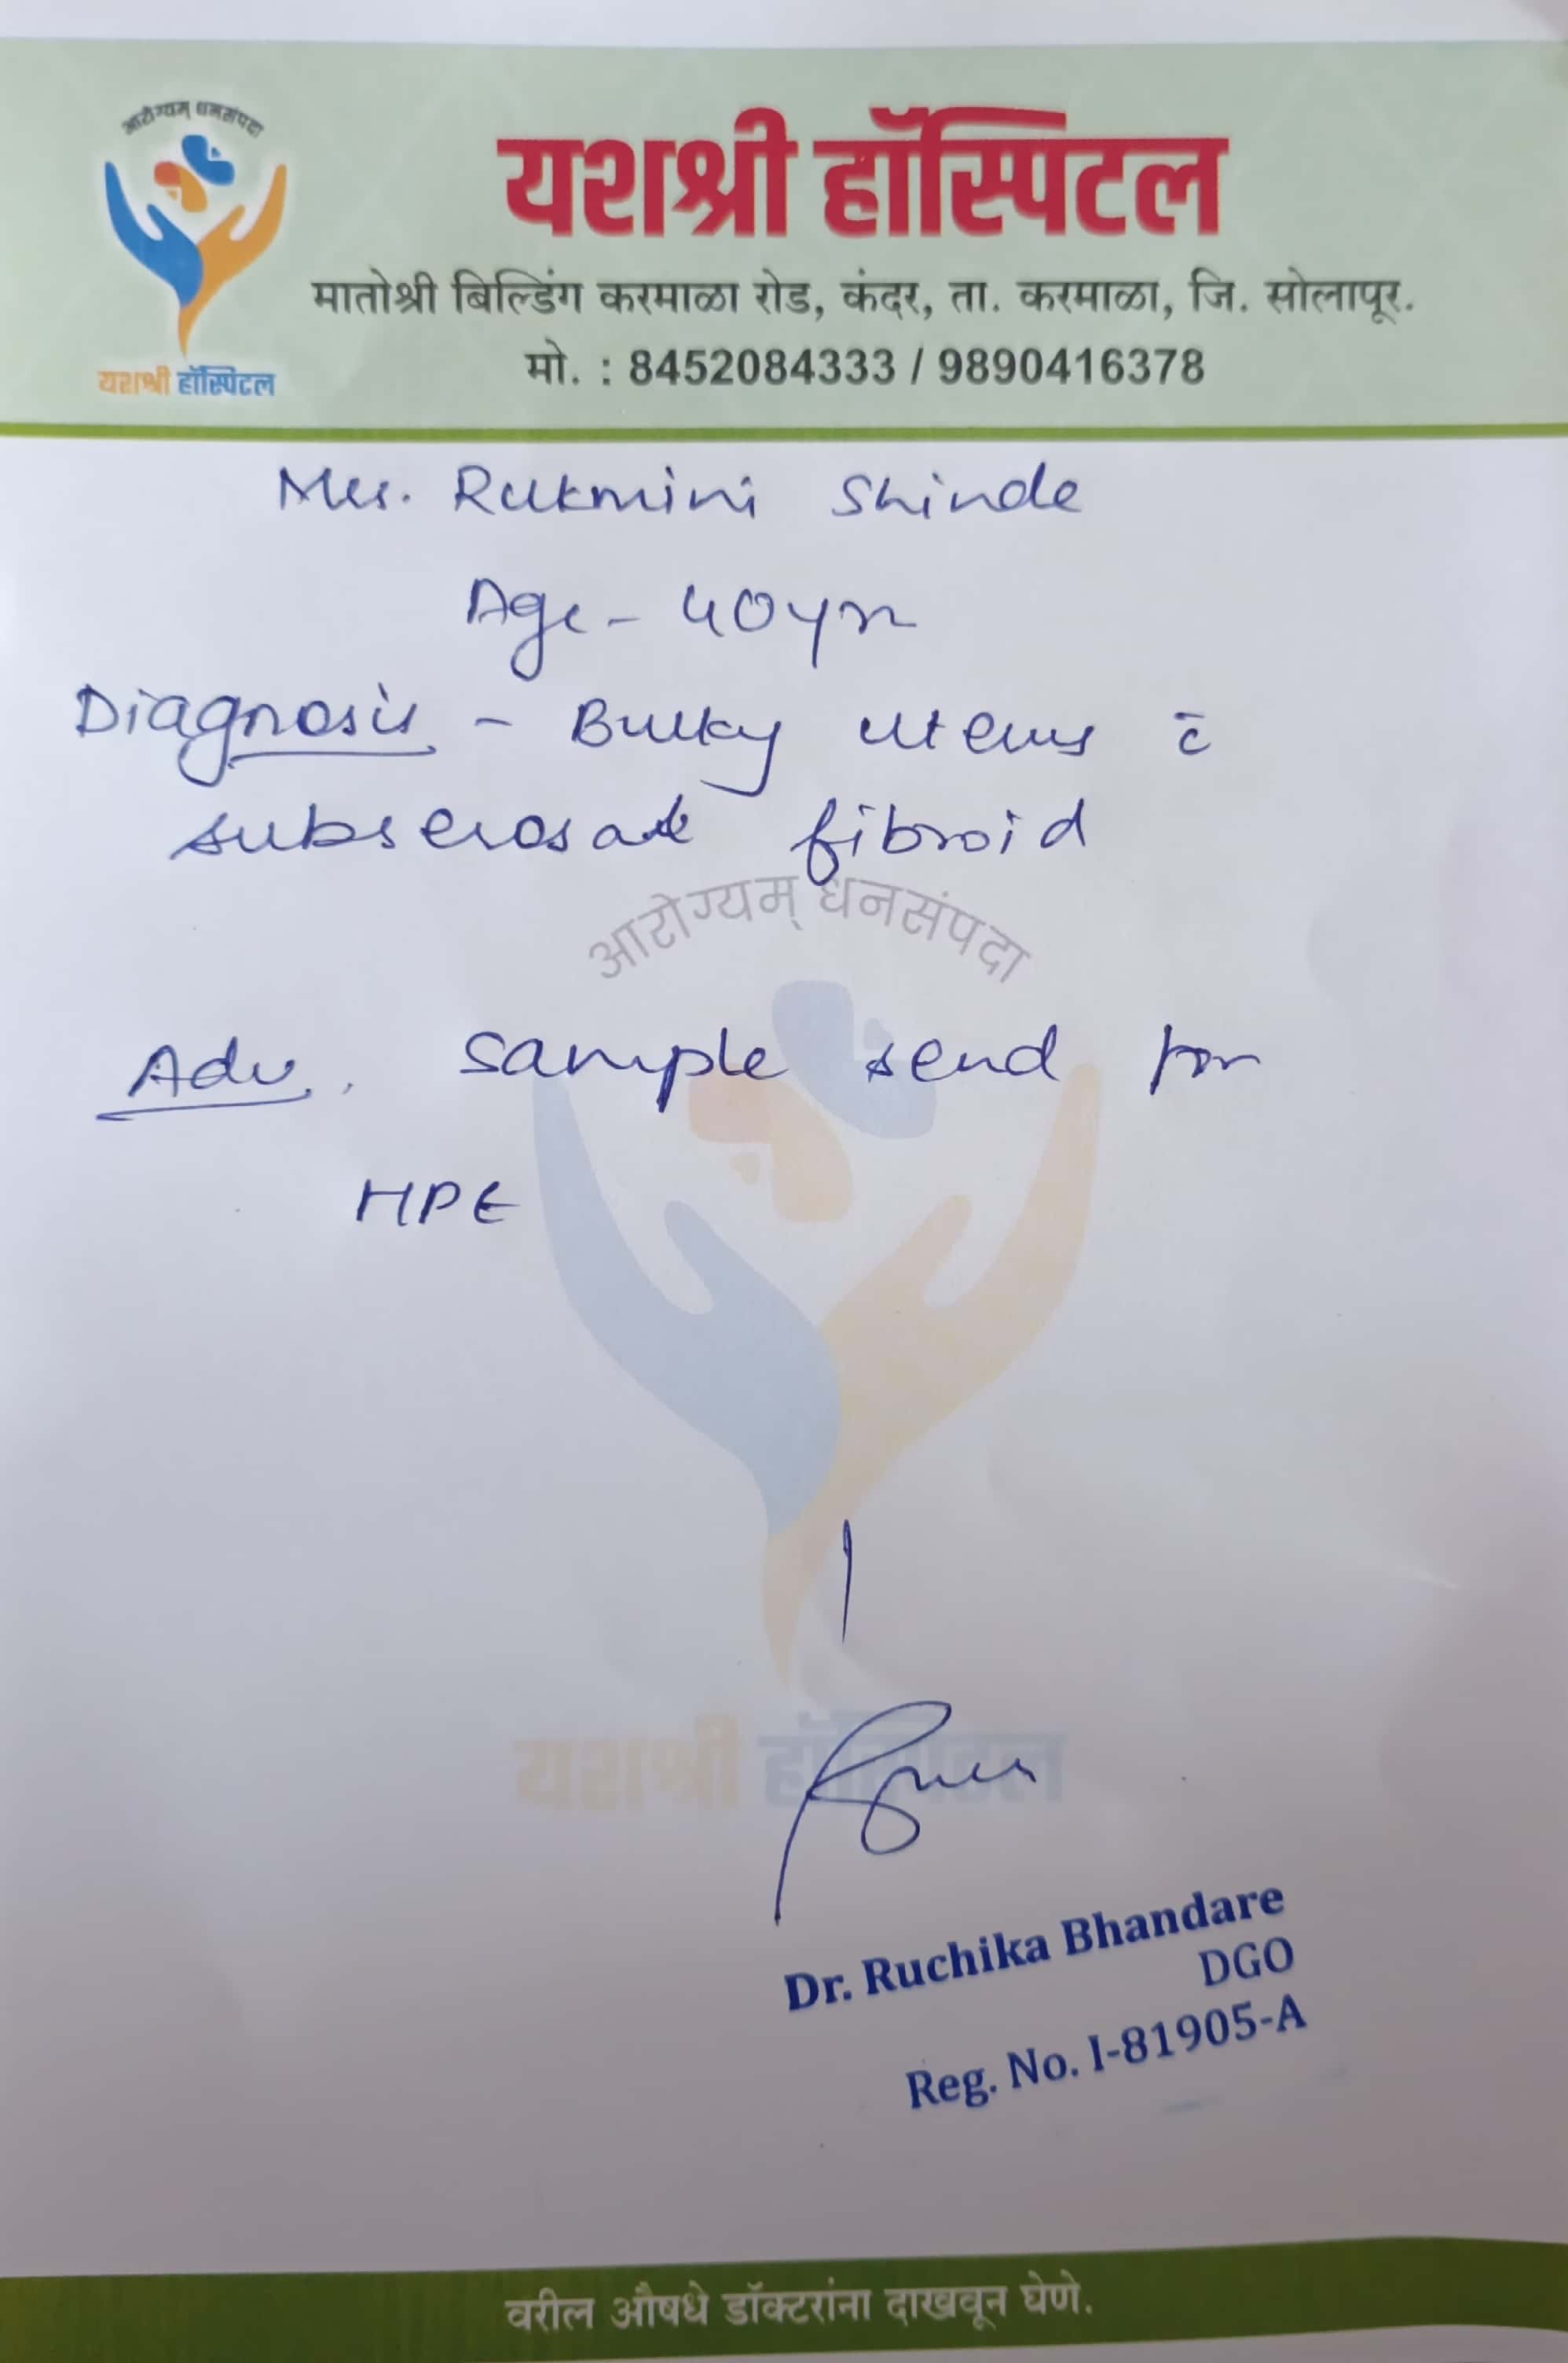 आरोग्यम् धनसंपदा
यशश्री हॉस्पिटल
यशश्री हॉस्पिटल
मातोश्री बिल्डिंग करमाळा रोड, कंदर, ता. करमाळा, जि. सोलापूर.
मो. : 8452084333 / 9890416378
Mrs. Rukmini Shinde
Age - 40yr
Diagnosis - Bulky uterus c̄
subserosal fibroid
आरोग्यम् धनसंपदा
Adv. sample send for
HPE
यशश्री हॉस्पिटल
Dr. Ruchika Bhandare
DGO
Reg. No. I-81905-A
वरील औषधे डॉक्टरांना दाखवून घेणे.